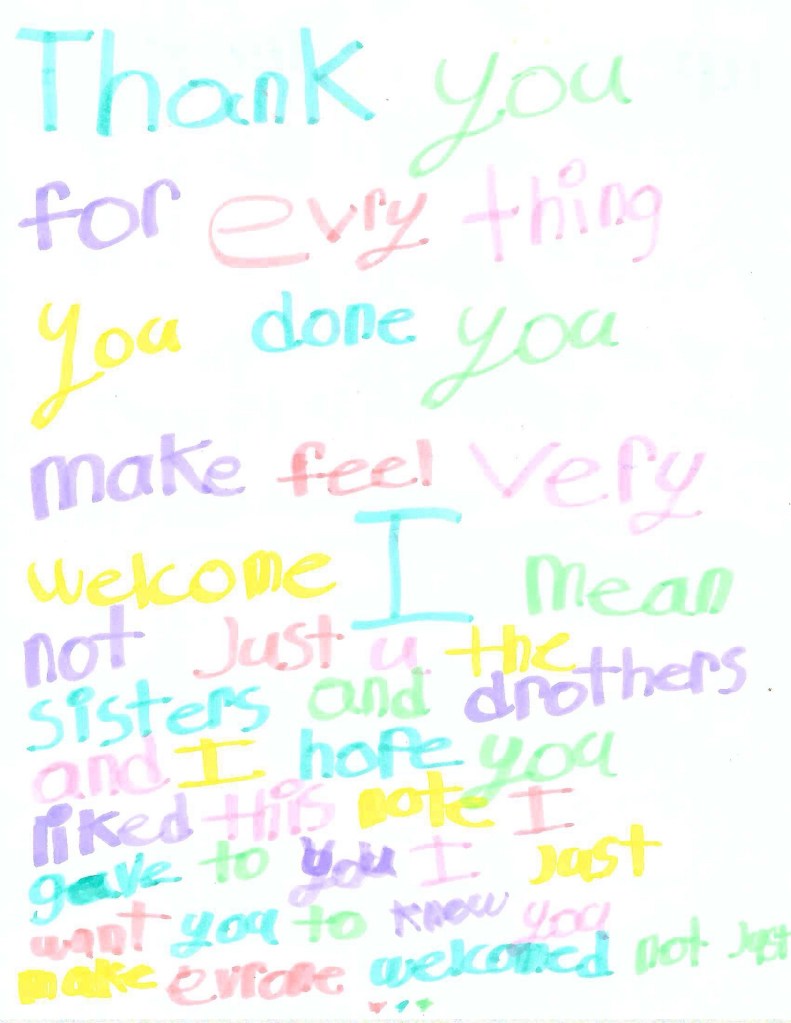 Thank you
for evry thing
you done you
make feel very
welcome I mean
not Just u the
sisters and drothers
and I hope you
liked this note I
gave to you I Just
want you to know you
make evrone welcomed not Just